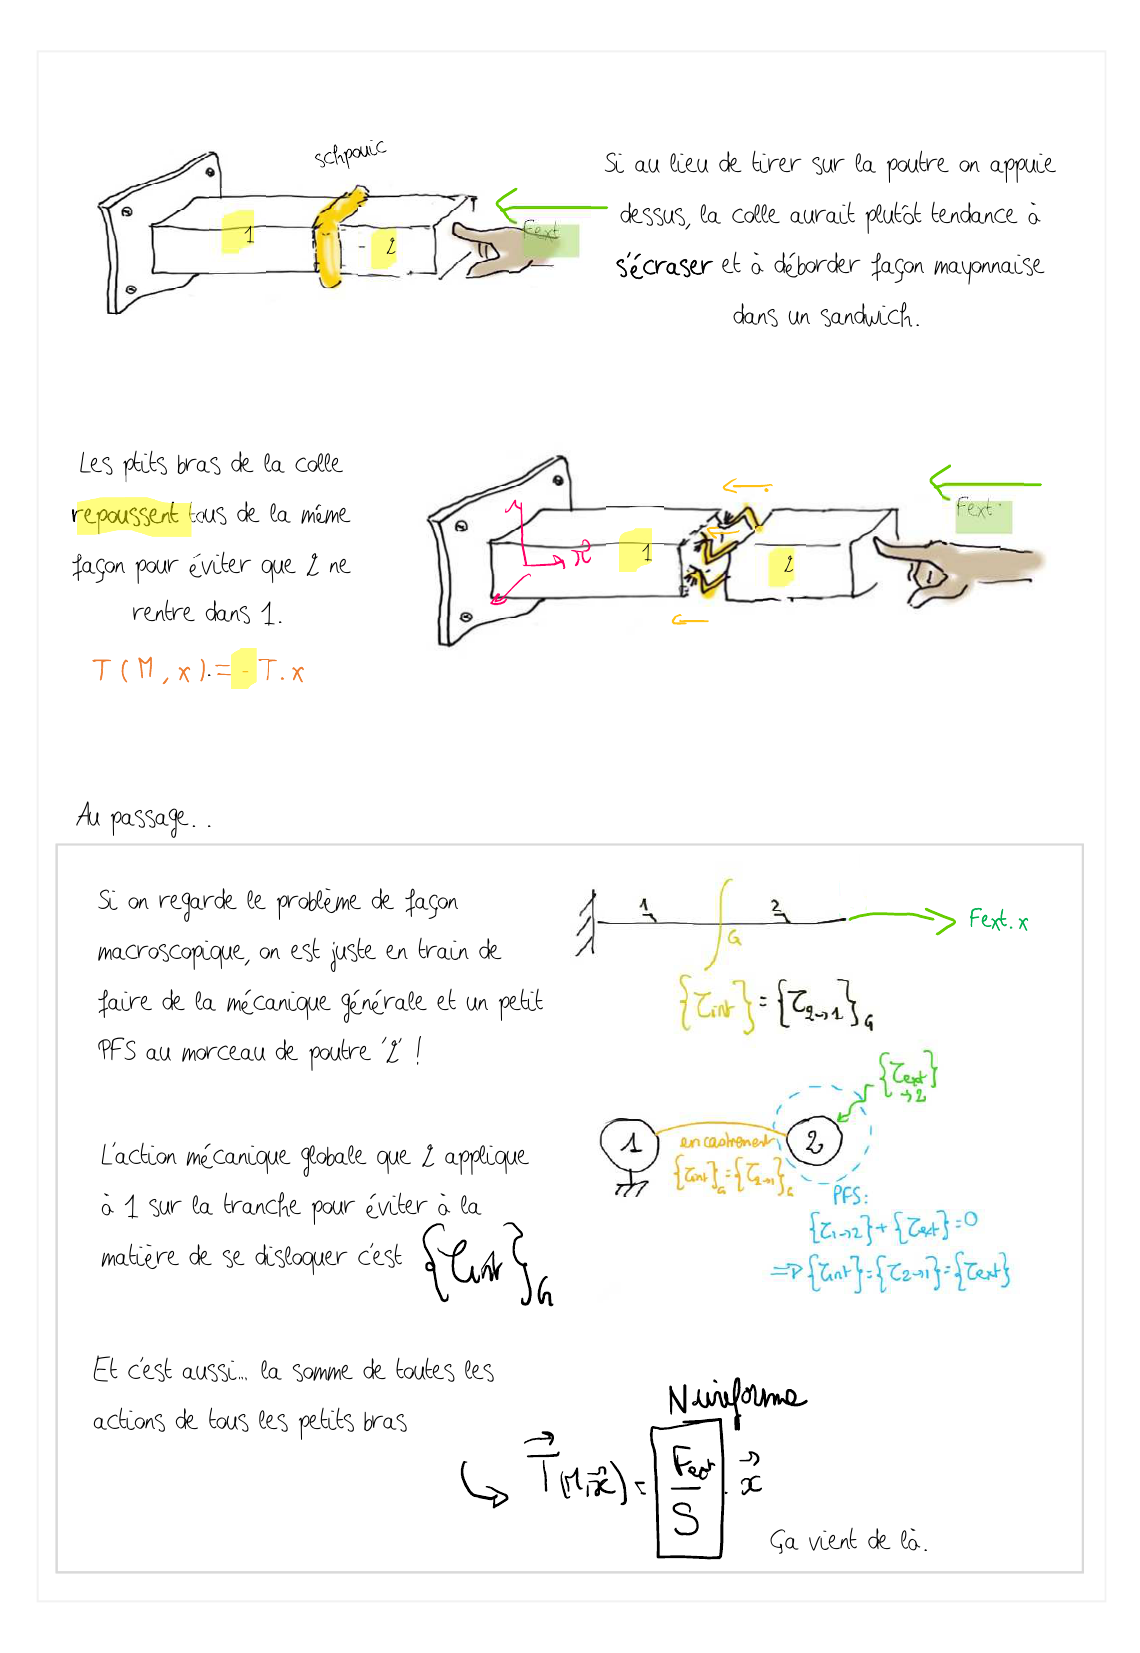 schpouic
1
2
Fext
Si au lieu de tirer sur la poutre on appuie
dessus, la colle aurait plutôt tendance à
s'écraser et à déborder façon mayonnaise
dans un sandwich.
Les ptits bras de la colle
repoussent tous de la même
façon pour éviter que 2 ne
rentre dans 1.
T ( M , x ) = - T. x
x
1
2
Fext
Au passage..
Si on regarde le problème de façon
macroscopique, on est juste en train de
faire de la mécanique générale et un petit
PFS au morceau de poutre '2' !
1
2
G
Fext. x
{τint} = {τ2→1}G
{τext→2}
1
encastrement
2
{τint}G = {τ2→1}G
PFS:
{τ1→2} + {τext} = 0
=> {τint} = {τ2→1} = {τext}
L'action mécanique globale que 2 applique
à 1 sur la tranche pour éviter à la
matière de se disloquer c'est {τint}G
Et c'est aussi... la somme de toutes les
actions de tous les petits bras
N uniforme
T(M,x) = Fext/S . x
Ça vient de là.